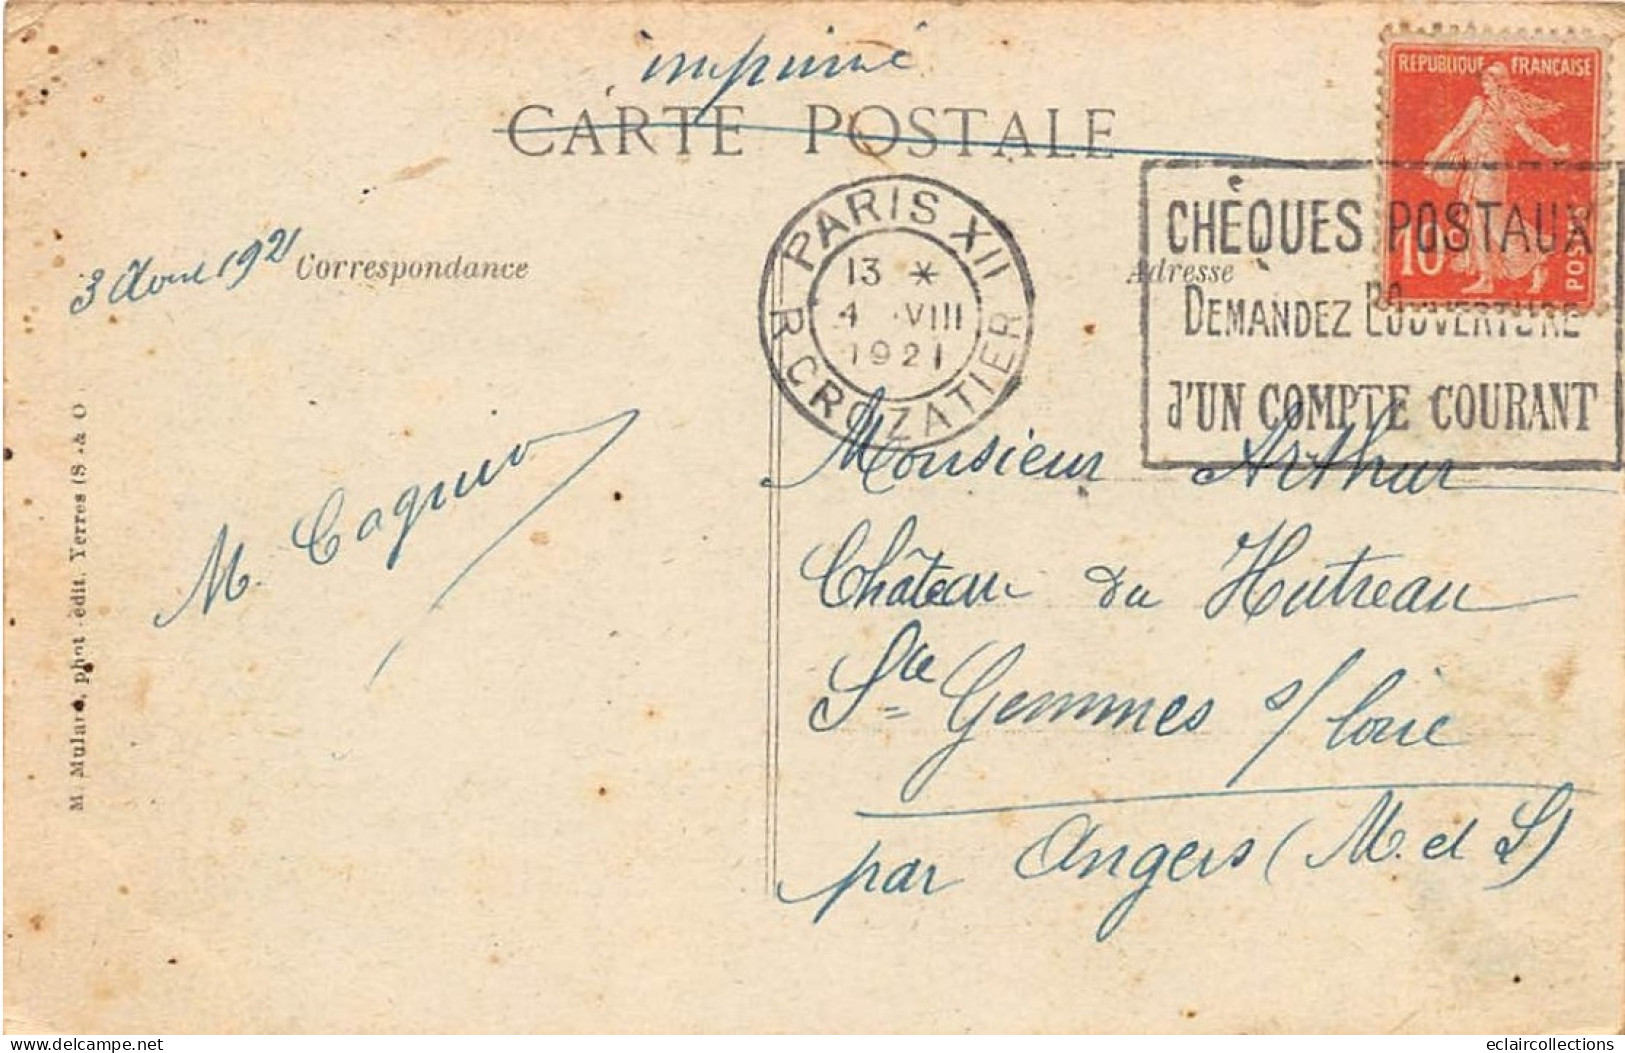 imprimé
CARTE POSTALE
RÉPUBLIQUE FRANÇAISE
10c
POSTES
PARIS XII
13 *
4 VIII
1921
R. CROZATIER
CHÈQUES POSTAUX
DEMANDEZ L'OUVERTURE
d'UN COMPTE COURANT
3 Aout 1921
Correspondance
Adresse
M. Mulard, phot.-édit. Yerres (S.-&-O
Monsieur Arthur
Château du Hutreau
Ste Gemmes s/ Loire
par Angers (M. et L)
M.
eclaircollections